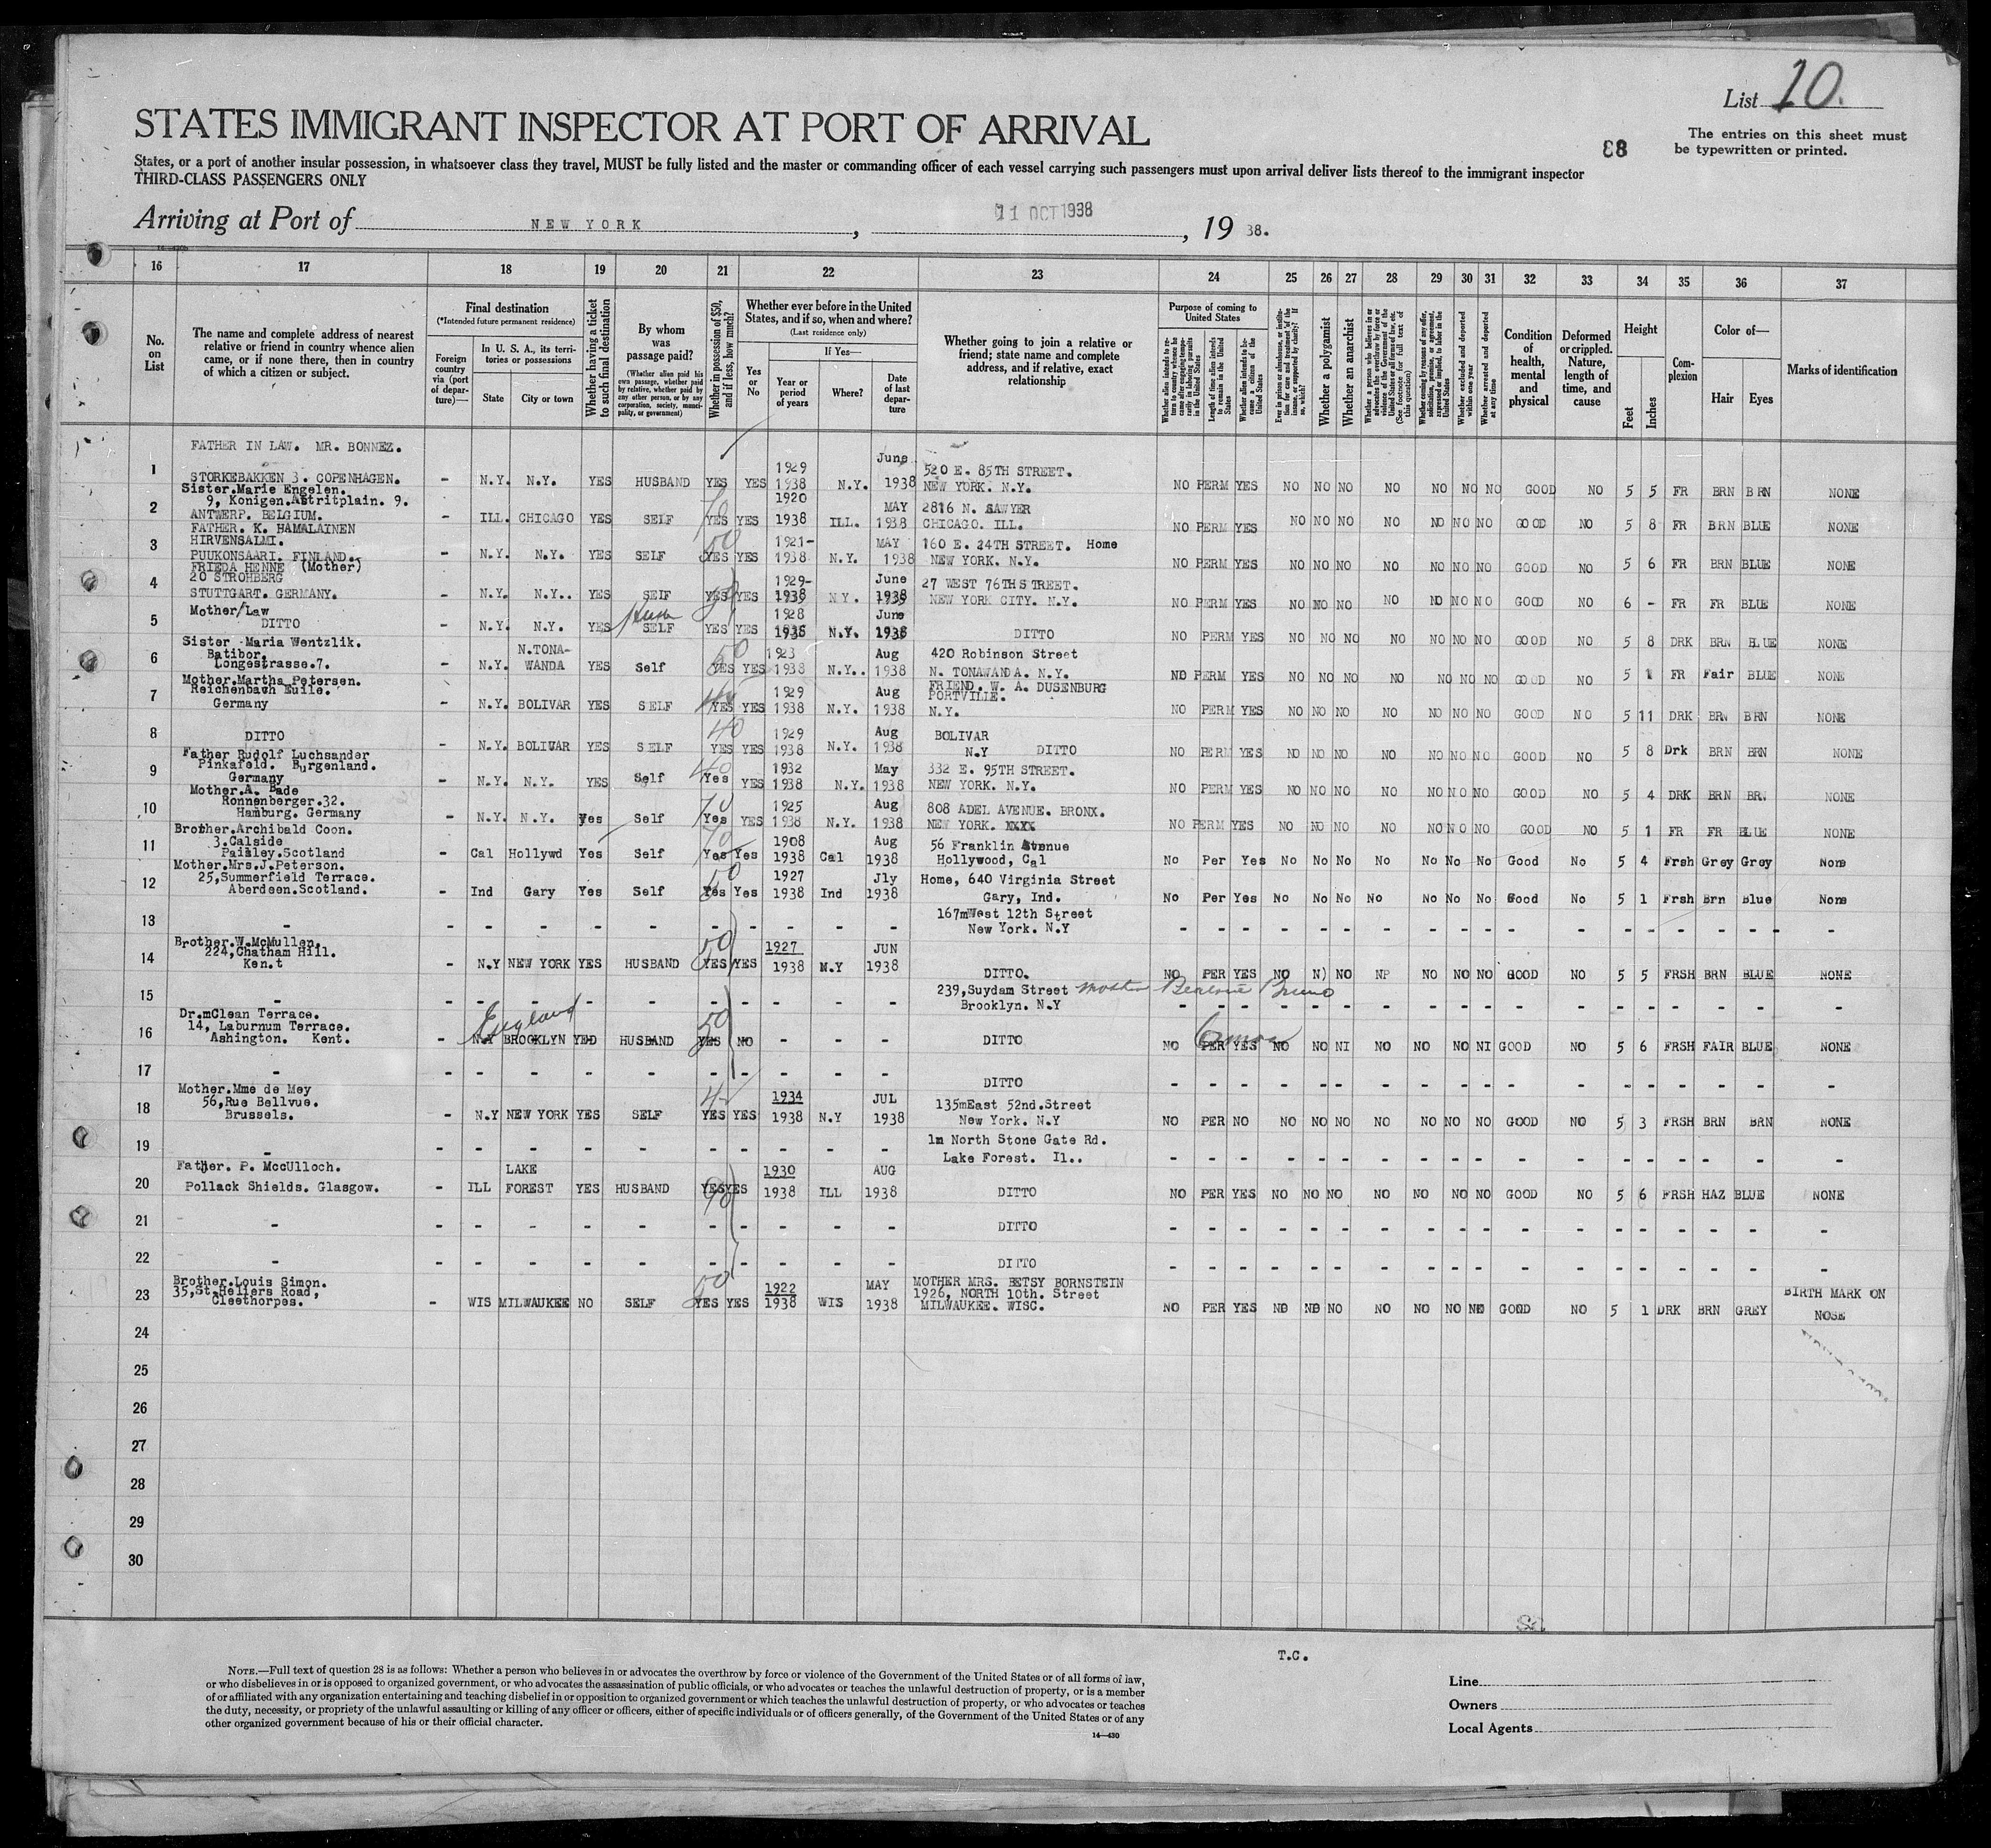 List 10.
STATES IMMIGRANT INSPECTOR AT PORT OF ARRIVAL
88
The entries on this sheet must
be typewritten or printed.
States, or a port of another insular possession, in whatsoever class they travel, MUST be fully listed and the master or commanding officer of each vessel carrying such passengers must upon arrival deliver lists thereof to the immigrant inspector
THIRD-CLASS PASSENGERS ONLY
Arriving at Port of NEW YORK, 11 OCT 1938, 19 38.
16 17 18 19 20 21 22 23 24 25 26 27 28 29 30 31 32 33 34 35 36 37
No. on List
The name and complete address of nearest relative or friend in country whence alien came, or if none there, then in country of which a citizen or subject.
Final destination
(*Intended future permanent residence)
Foreign country via (port of departure)—
In U. S. A., its territories or possessions
State
City or town
Whether having a ticket to such final destination
By whom was passage paid?
(Whether alien paid his own passage, whether paid by relative, whether paid by any other person, or by any corporation, society, municipality, or government)
Whether in possession of $50, and if less, how much?
Whether ever before in the United States, and if so, when and where?
(Last residence only)
Yes or No
If Yes—
Year or period of years
Where?
Date of last departure
Whether going to join a relative or friend; state name and complete address, and if relative, exact relationship
Purpose of coming to United States
Whether alien intends to return to country whence he came after engaging temporarily in laboring pursuits in the United States
Length of time alien intends to remain in the United States
Whether alien intends to become a citizen of the United States
Ever in prison or almshouse, or institution for care and treatment of the insane, or supported by charity? If so, which?
Whether a polygamist
Whether an anarchist
Whether a person who believes in or advocates the overthrow by force or violence of the Government of the United States or all forms of law, etc. (See footnote for full text of this question)
Whether coming by reasons of any offer, solicitation, promise, or agreement, expressed or implied, to labor in the United States
Whether excluded and deported within one year
Whether arrested and deported at any time
Condition of health, mental and physical
Deformed or crippled. Nature, length of time, and cause
Height
Feet
Inches
Complexion
Color of—
Hair
Eyes
Marks of identification
FATHER IN LAW. MR. BONNEZ.
June
1 1929 520 E. 85TH STREET.
STORKEBAKKEN 3. COPENHAGEN. - N.Y. N.Y. YES HUSBAND YES YES 1938 N.Y. 1938 NEW YORK. N.Y. NO PERM YES NO NO NO NO NO NO NO GOOD NO 5 5 FR BRN BRN NONE
Sister.Marie Engelen.
2 9, Konigen.Astritplain. 9. 1920 MAY 2816 N. SAWYER
ANTWERP. BELGIUM. - ILL. CHICAGO YES SELF YES YES 1938 ILL. 1938 CHICAGO. ILL. NO PERM YES NO NO NO NO NO NO NO GOOD NO 5 8 FR BRN BLUE NONE
FATHER. K. HAMALAINEN
3 HIRVENSALMI. 1921- MAY 160 E. 24TH STREET. Home
PUUKONSAARI. FINLAND. - N.Y. N.Y. YES SELF YES YES 1938 N.Y. 1938 NEW YORK. N.Y. NO PERM YES NO NO NO NO NO NO NO GOOD NO 5 6 FR BRN BLUE NONE
FRIEDA HENNE (Mother)
4 20 STROHBERG 1929- June 27 WEST 76TH STREET.
STUTTGART. GERMANY. - N.Y. N.Y.. YES SELF YES YES 1938 NY. 1938 NEW YORK CITY. N.Y. NO PERM YES NO NO NO NO NO NO NO GOOD NO 6 - FR FR BLUE NONE
Mother/Law 1928 June
5 DITTO - N.Y. N.Y. YES SELF YES YES 1938 N.Y. 1938 DITTO NO PERM YES NO NO NO NO NO NO NO GOOD NO 5 8 DRK BRN BLUE NONE
Sister Maria Wentzlik.
6 Batibor, N.TONA- 1923 Aug 420 Robinson Street
Longestrasse.7. - N.Y. WANDA YES Self YES YES 1938 N.Y.. 1938 N. TONAWANDA. N.Y. NO PERM YES NO NO NO NO NO NO NO GOOD NO 5 1 FR Fair BLUE NONE
Mother.Martha Petersen. FRIEND. W. A. DUSENBURG
7 Reichenbach Euile. 1929 Aug PORTVILLE.
Germany - N.Y. BOLIVAR YES SELF YES YES 1938 N.Y. 1938 N.Y. NO PERM YES NO NO NO NO NO NO NO GOOD NO 5 11 DRK BRN BRN NONE
40
8 DITTO 1929 Aug BOLIVAR
- N.Y. BOLIVAR YES SELF YES YES 1938 N.Y. 1938 N.Y DITTO NO PERM YES NO NO NO NO NO NO NO GOOD NO 5 8 Drk BRN BRN NONE
Father Rudolf Luchsander
9 Pinkafeld. Burgenland. 40 1932 May 332 E. 95TH STREET.
Germany - N.Y. N.Y. YES Self Yes YES 1938 N.Y. 1938 NEW YORK. N.Y. NO PERM YES NO NO NO NO NO NO NO GOOD NO 5 4 DRK BRN BRN NONE
Mother.A. Bade
10 Ronnenberger.32. 1925 Aug 808 ADEL AVENUE. BRONX.
Hamburg. Germany - N.Y. N.Y. Yes Self Yes YES 1938 N.Y. 1938 NEW YORK. NO PERM YES NO NO NO NO NO NO NO GOOD NO 5 1 FR FR BLUE NONE
Brother.Archibald Coon.
11 3.Calside 1908 Aug 56 Franklin Avenue
Paisley.Scotland - Cal Hollywd Yes Self Yes Yes 1938 Cal 1938 Hollywood, Cal No Per Yes No No No No No No No Good No 5 4 Frsh Grey Grey None
Mother.Mrs.J.Peterson.
12 25,Summerfield Terrace. 50 1927 Jly Home, 640 Virginia Street
Aberdeen.Scotland. - Ind Gary Yes Self Yes Yes 1938 Ind 1938 Gary, Ind. No Per Yes No No No No No No No Good No 5 1 Frsh Brn Blue None
13 167mWest 12th Street
- - - - - - - - - - - New York. N.Y - - - - - - - - - - - - - - - - - -
Brother.W.McMullen.
14 224,Chatham Hill. 50 1927 JUN
Ken.t - N.Y NEW YORK YES HUSBAND YES YES 1938 N.Y 1938 DITTO. NO PER YES NO N) NO NP NO NO NO GOOD NO 5 5 FRSH BRN BLUE NONE
15 239,Suydam Street mother Bruno
- - - - - - - - - - - Brooklyn. N.Y - - - - - - - - - - - - - - - - - -
Dr.mClean Terrace.
16 14, Laburnum Terrace. England 50
Ashington. Kent. - N.Y BROOKLYN YED HUSBAND YES NO - - - DITTO NO PER YES NO NO NI NO NO NO NI GOOD NO 5 6 FRSH FAIR BLUE NONE
6 mos
17 - - - - - - - - - - - DITTO - - - - - - - - - - - - - - - - - -
Mother.Mme de Mey
18 56,Rue Bellvue. 1934 JUL 135mEast 52nd.Street
Brussels. - N.Y NEW YORK YES SELF YES YES 1938 N.Y 1938 New York. N.Y NO PER NO NO NO NO NO NO NO NO GOOD NO 5 3 FRSH BRN BRN NONE
19 1m North Stone Gate Rd.
- - - - - - - - - - - Lake Forest. Il.. - - - - - - - - - - - - - - - - - -
Father. P. McCUlloch. LAKE 1930 AUG
20 Pollack Shields. Glasgow. - ILL FOREST YES HUSBAND YES YES 1938 ILL 1938 DITTO NO PER YES NO NO NO NO NO NO NO GOOD NO 5 6 FRSH HAZ BLUE NONE
90
21 - - - - - - - - - - - DITTO - - - - - - - - - - - - - - - - - -
22 - - - - - - - - - - - DITTO - - - - - - - - - - - - - - - - - -
Brother.Louis Simon. 50 1922 MAY MOTHER MRS. BETSY BORNSTEIN
23 35,St.Heliers Road, 1926, NORTH 10th. Street BIRTH MARK ON
Cleethorpes. - WIS MILWAUKEE NO SELF YES YES 1938 WIS 1938 MILWAUKEE. WISC. NO PER YES NO NO NO NO NO NO NO GOOD NO 5 1 DRK BRN GREY NOSE
24
25
26
27
28
29
30
T.C.
NOTE.—Full text of question 28 is as follows: Whether a person who believes in or advocates the overthrow by force or violence of the Government of the United States or of all forms of law,
or who disbelieves in or is opposed to organized government, or who advocates the assassination of public officials, or who advocates or teaches the unlawful destruction of property, or is a member
of or affiliated with any organization entertaining and teaching disbelief in or opposition to organized government or which teaches the unlawful destruction of property, or who advocates or teaches
the duty, necessity, or propriety of the unlawful assaulting or killing of any officer or officers, either of specific individuals or of officers generally, of the Government of the United States or of any
other organized government because of his or their official character.
14—430
Line
Owners
Local Agents